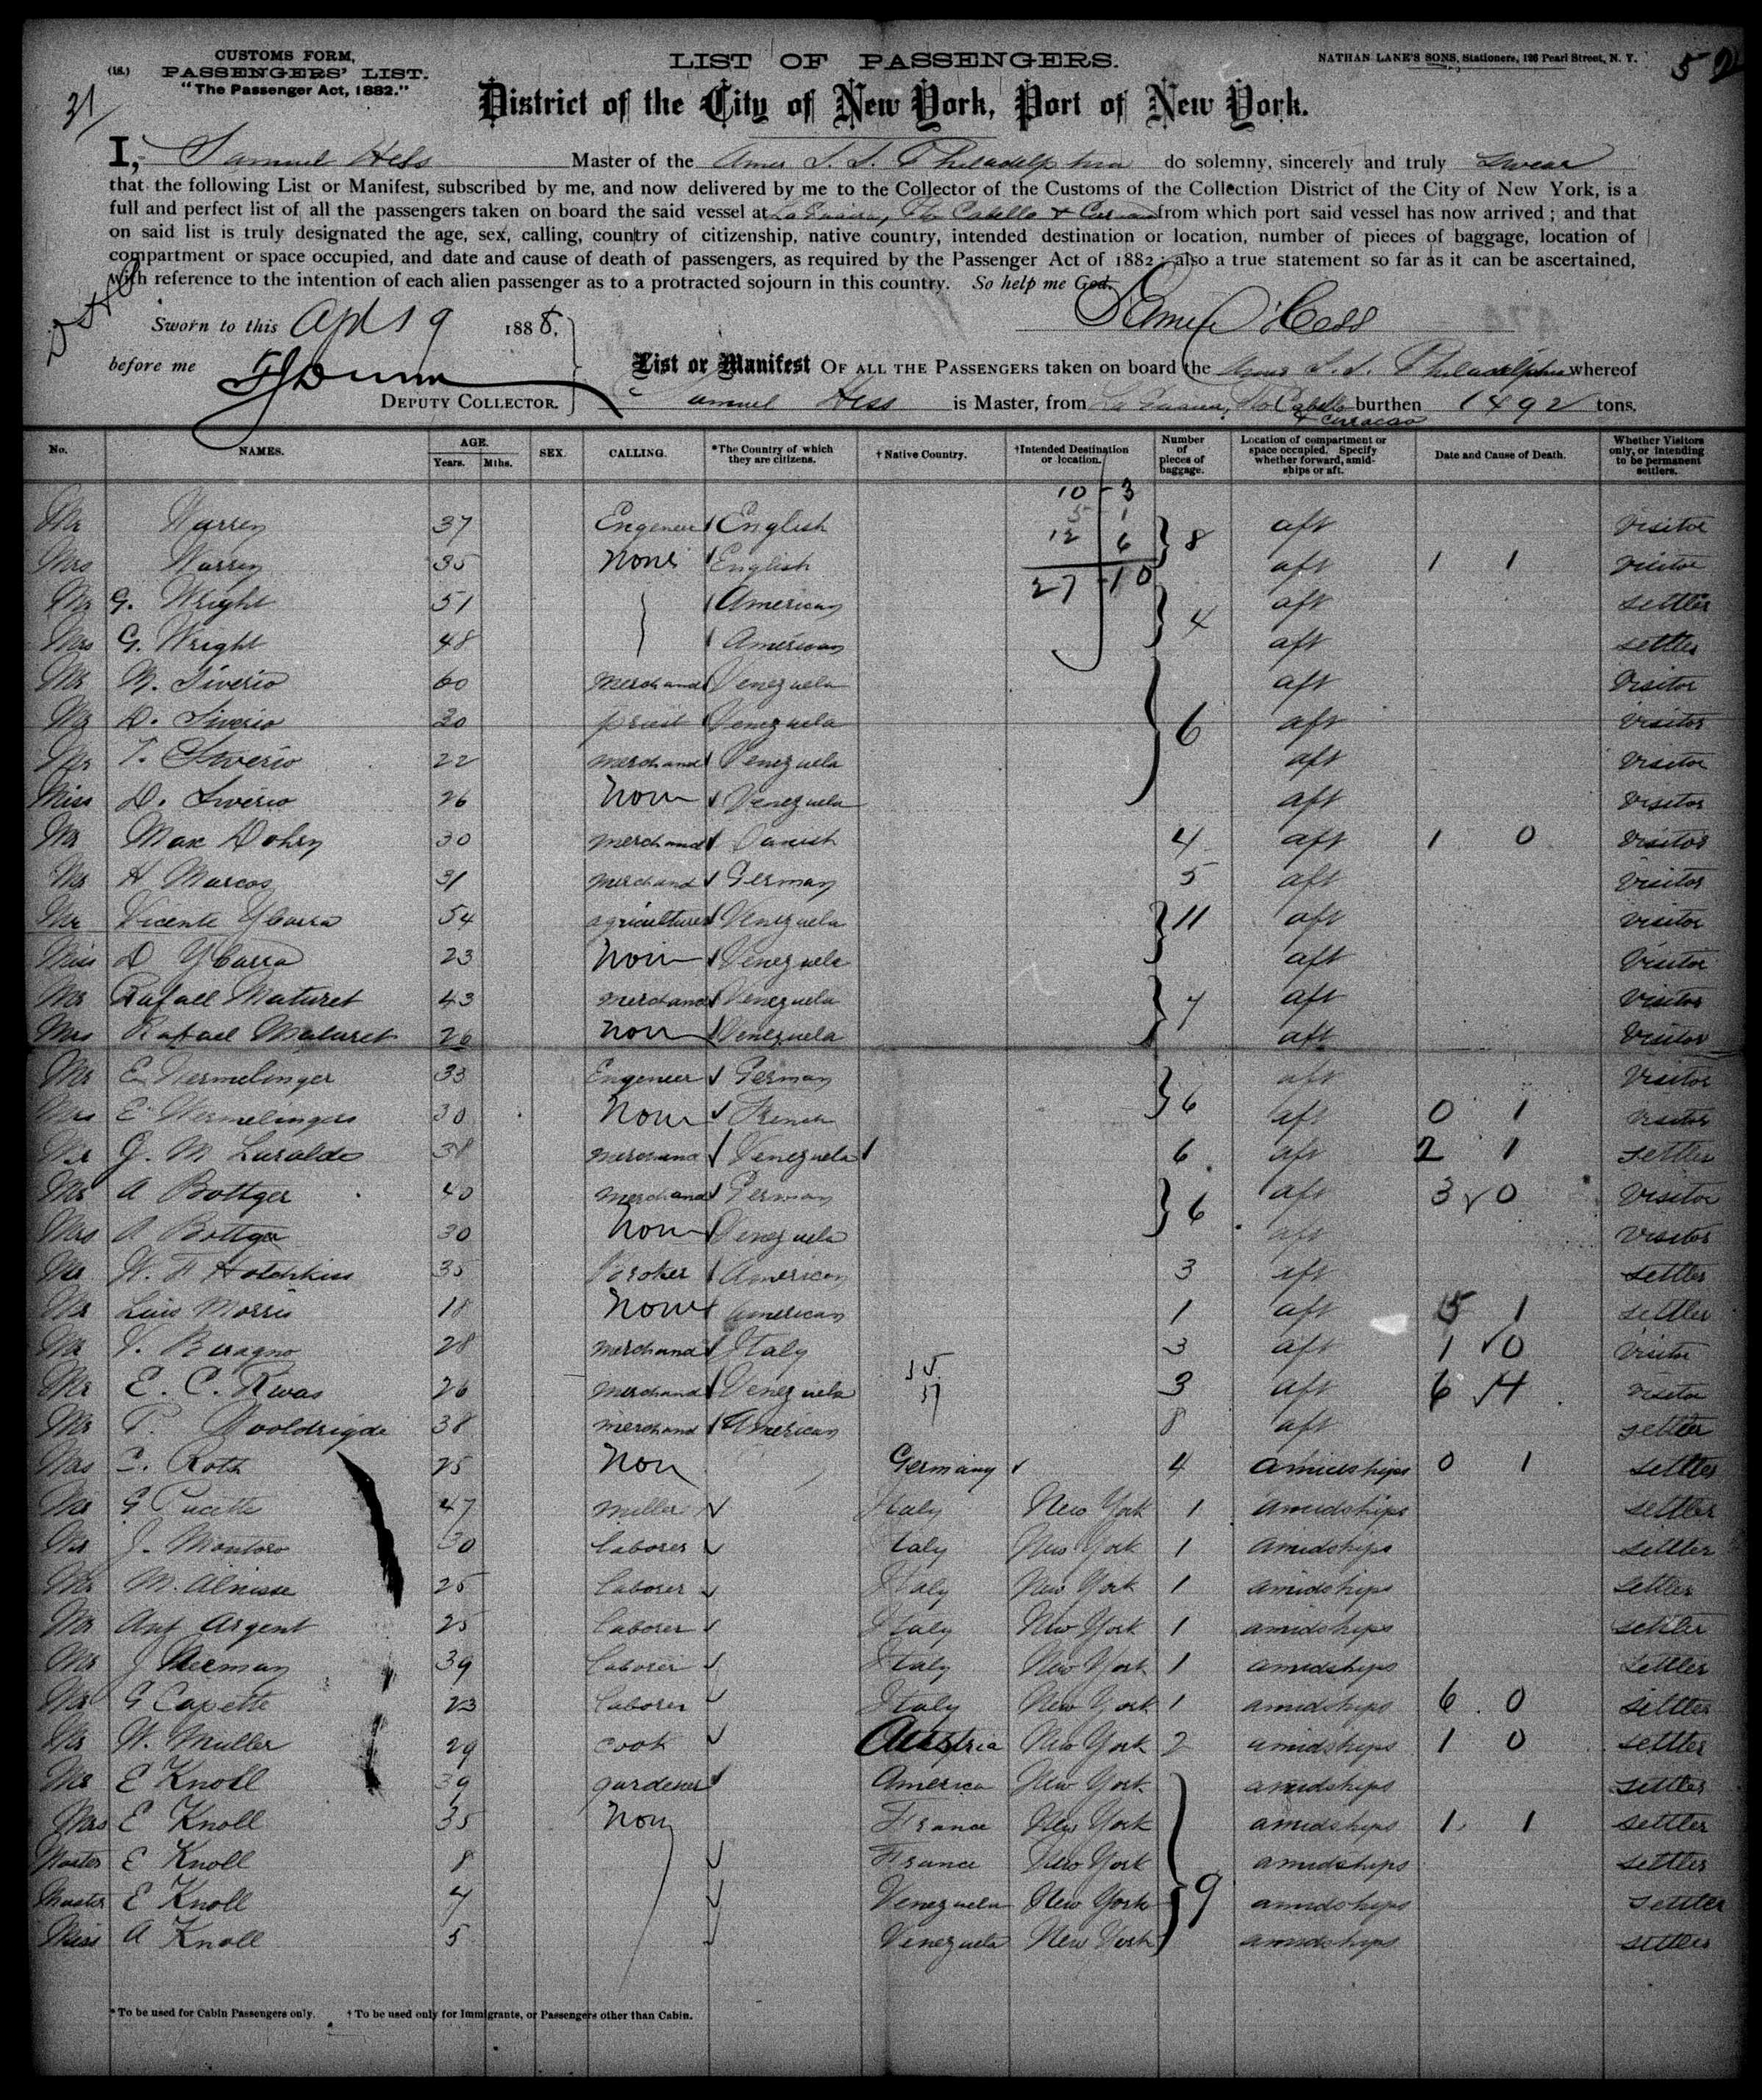 CUSTOMS FORM,
(18.) PASSENGERS' LIST.
"The Passenger Act, 1882."
LIST OF PASSENGERS.
NATHAN LANE'S SONS, Stationers, 196 Pearl Street, N. Y.
52
31
District of the City of New York, Port of New York.
I, Samuel Hess Master of the Amer S. S. Philadelphia do solemny, sincerely and truly swear
that the following List or Manifest, subscribed by me, and now delivered by me to the Collector of the Customs of the Collection District of the City of New York, is a
full and perfect list of all the passengers taken on board the said vessel at La Guaira, Pto Cabello & Curacao from which port said vessel has now arrived; and that
on said list is truly designated the age, sex, calling, country of citizenship, native country, intended destination or location, number of pieces of baggage, location of
compartment or space occupied, and date and cause of death of passengers, as required by the Passenger Act of 1882; also a true statement so far as it can be ascertained,
with reference to the intention of each alien passenger as to a protracted sojourn in this country. So help me God.
Samuel Hess
Sworn to this Apl 19 1888.
before me
DEPUTY COLLECTOR.
List or Manifest OF ALL THE PASSENGERS taken on board the Amer S. S. Philadelphia whereof
Samuel Hess is Master, from La Guaira, Pto Cabello & Curacao burthen 1492 tons.
No. NAMES. AGE. Years. Mths. SEX. CALLING. *The Country of which they are citizens. † Native Country. †Intended Destination or location. Number of pieces of baggage. Location of compartment or space occupied. Specify whether forward, amidships or aft. Date and Cause of Death. Whether Visitors only, or intending to be permanent settlers.
10 3
5 1
12 6
27 10
Mr 37 Engeneer English 8 aft Visitor
Mrs 35 None English aft 1 1 Visitor
Mr G. Wright 51 American 4 aft settler
Mrs G. Wright 48 American aft settler
Mr M. Siverio 60 merchand Venezuela aft Visitor
Mr D. Siverio 30 priest Venezuela 6 aft Visitor
Mr T. Siverio 22 merchand Venezuela aft Visitor
Miss D. Siverio 26 Non Venezuela aft Visitor
Mr Max Dohrn 30 merchand Danish 4 aft 1 0 Visitor
Mr H Marcos 31 merchand German 5 aft Visitor
Mr Vicente Ybarra 54 agriculturer Venezuela 11 aft Visitor
Miss D Ybarra 23 Non Venezuela aft Visitor
Mr Rafael Maturet 43 merchand Venezuela 4 aft Visitor
Mrs Rafael Maturet 26 non Venezuela aft Visitor
Mr E Wermelinger 33 Engeneer German 6 aft Visitor
Mrs E Wermelinger 30 Non French aft 0 1 Visitor
Mr J. M Luralde 38 merchand Venezuela 6 aft 2 1 settler
Mr A Bottger 40 merchand German 6 aft 3 0 Visitor
Mrs A Bottger 30 Non Venezuela aft Visitor
Mr W. F Hotchkiss 35 Broker American 3 aft settler
Mr Luis Morris 18 None American 1 aft 5 1 settler
Mr V. Buragno 28 merchand Italy 3 aft 1 0 Visitor
Mr E. C. Rivas 26 merchand Venezuela 3 aft 6 4 Visitor
Mr T. Wooldrigde 38 merchand American 8 aft settler
Mrs C. Roth 25 Non Germany 4 amidships 0 1 settler
Mr G Pucette 47 miller Italy New York 1 amidships settler
Mr J. Montoro 30 laborer Italy New York 1 amidships settler
Mr M. Alnisse 25 laborer Italy New York 1 amidships settler
Mr Ant Argent 25 laborer Italy New York 1 amidships settler
Mr J Neeman 39 laborer Italy New York 1 amidships settler
Mr G Capette 23 laborer Italy New York 1 amidships 6 0 settler
Mr W. Muller 29 cook Austria New York 2 amidships 1 0 settler
Mr E Knoll 39 gardener America New York amidships settler
Mrs E Knoll 35 Non France New York amidships 1 1 settler
Master E Knoll 8 France New York amidships settler
Master E Knoll 4 Venezuela New York 9 amidships settler
Miss A Knoll 5 Venezuela New York amidships settler
* To be used for Cabin Passengers only. † To be used only for Immigrants, or Passengers other than Cabin.